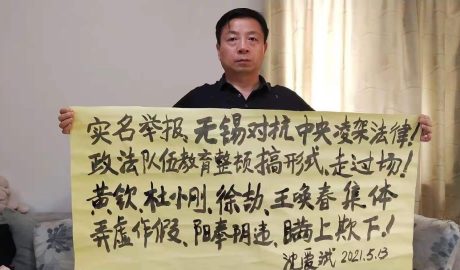 实名举报、无锡对抗中央凌架法律！
政法队伍教育整顿搞形式、走过场！
黄钦、杜小刚、徐劼、王唤春集体
弄虚作假、阳奉阴违、瞒上欺下！
沈爱斌 2021.5.13